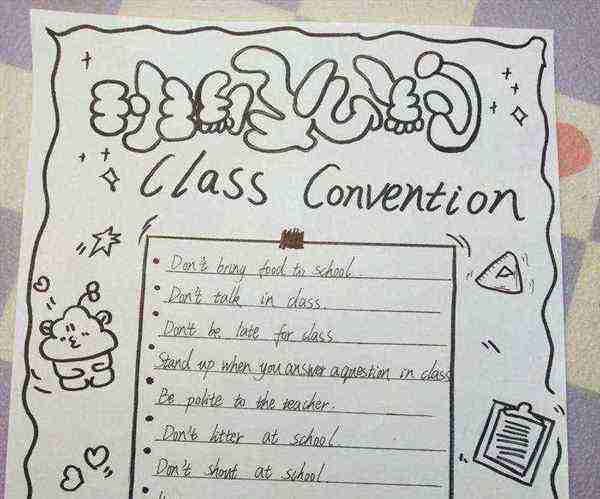 班级公约
Class Convention
Don't bring food to school
Don't talk in class.
Don't be late for class
Stand up when you answer a question in class
Be polite to the teacher.
Don't litter at school.
Don't shout at school